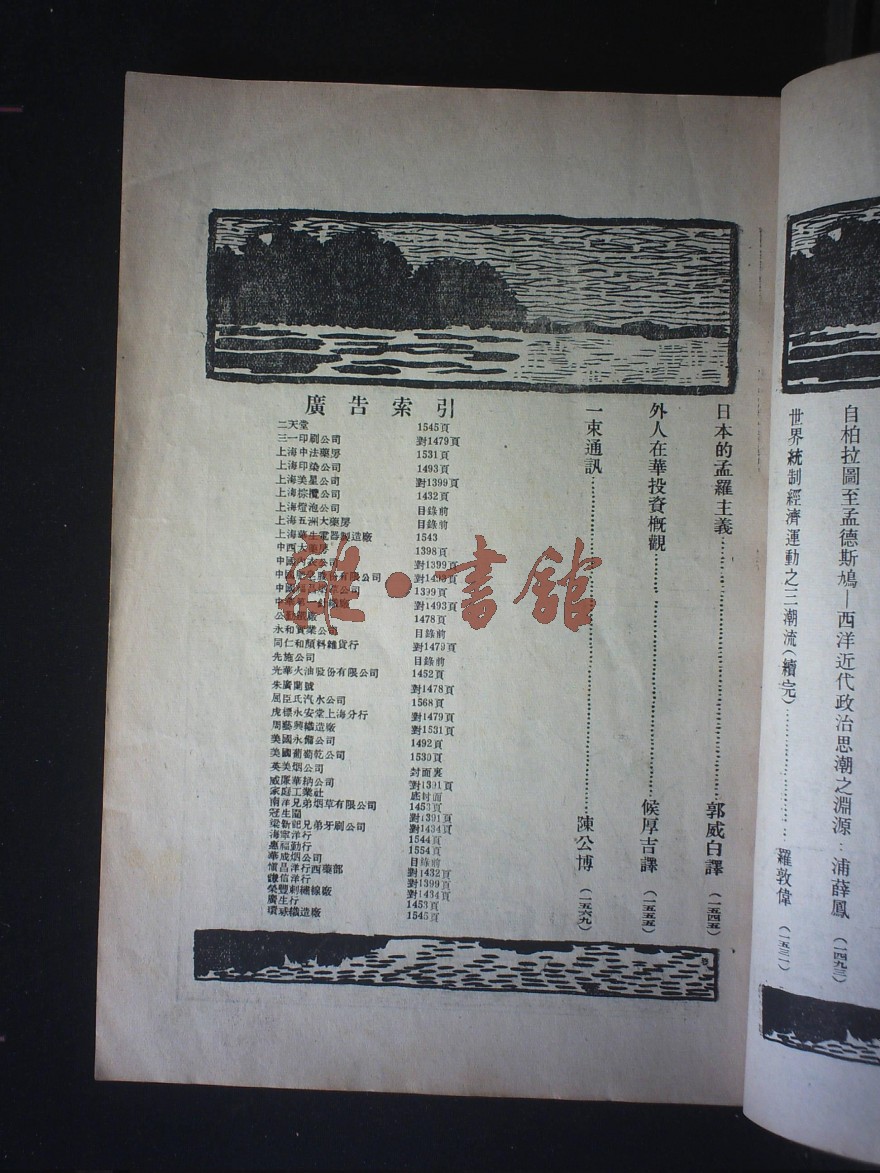 自柏拉圖至孟德斯鳩—西洋近代政治思潮之淵源‥浦薛鳳（一四九三）
世界統制經濟運動之三潮流（續完）……………羅敦偉（一五三一）
日本的孟羅主義……………郭威白譯（一五四五）
外人在華投資槪觀……………候厚吉譯（一五五五）
一束通訊……………陳公博（一五六九）
廣告索引
二天堂 1545頁
三一印刷公司 對1479頁
上海中法藥房 1531頁
上海印染公司 1493頁
上海美星公司 對1399頁
上海棕欖公司 1432頁
上海燈泡公司 目錄前
上海五洲大藥房 目錄前
上海華生電器製造廠 1543
中西大藥房 1398頁
中國內衣公司 對1399頁
中國 股份有限公司 對1493頁
中國 公司 1399頁
中華第一針織廠 對1493頁
公勤鐵廠 1478頁
永和實業公司 目錄前
同仁和顏料雜貨行 對1479頁
先施公司 目錄前
光華火油股份有限公司 1452頁
朱廣蘭號 對1478頁
屈臣氏汽水公司 1568頁
虎標永安堂上海分行 對1479頁
周藝興織造廠 對1531頁
美國永備公司 1492頁
美國葡萄乾公司 1530頁
英美烟公司 封面裏
威廉華納公司 對1391頁
家庭工業社 底封面
南洋兄弟烟草有限公司 1453頁
冠生園 對1391頁
梁新記兄弟牙刷公司 對1434頁
海寧洋行 1544頁
惠福勤行 1554頁
華成烟公司 目錄前
愼昌洋行西藥部 對1432頁
謙信洋行 對1399頁
榮豐刺繡線廠 對1434頁
廣生行 1453頁
環球織造廠 1545頁
雜·書館